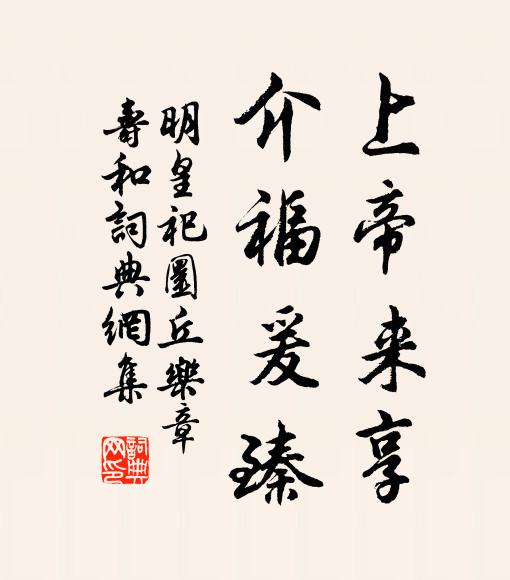 上帝来享
介福爰臻
明皇祀圜丘樂章
壽和詞典網集
詞典
网印